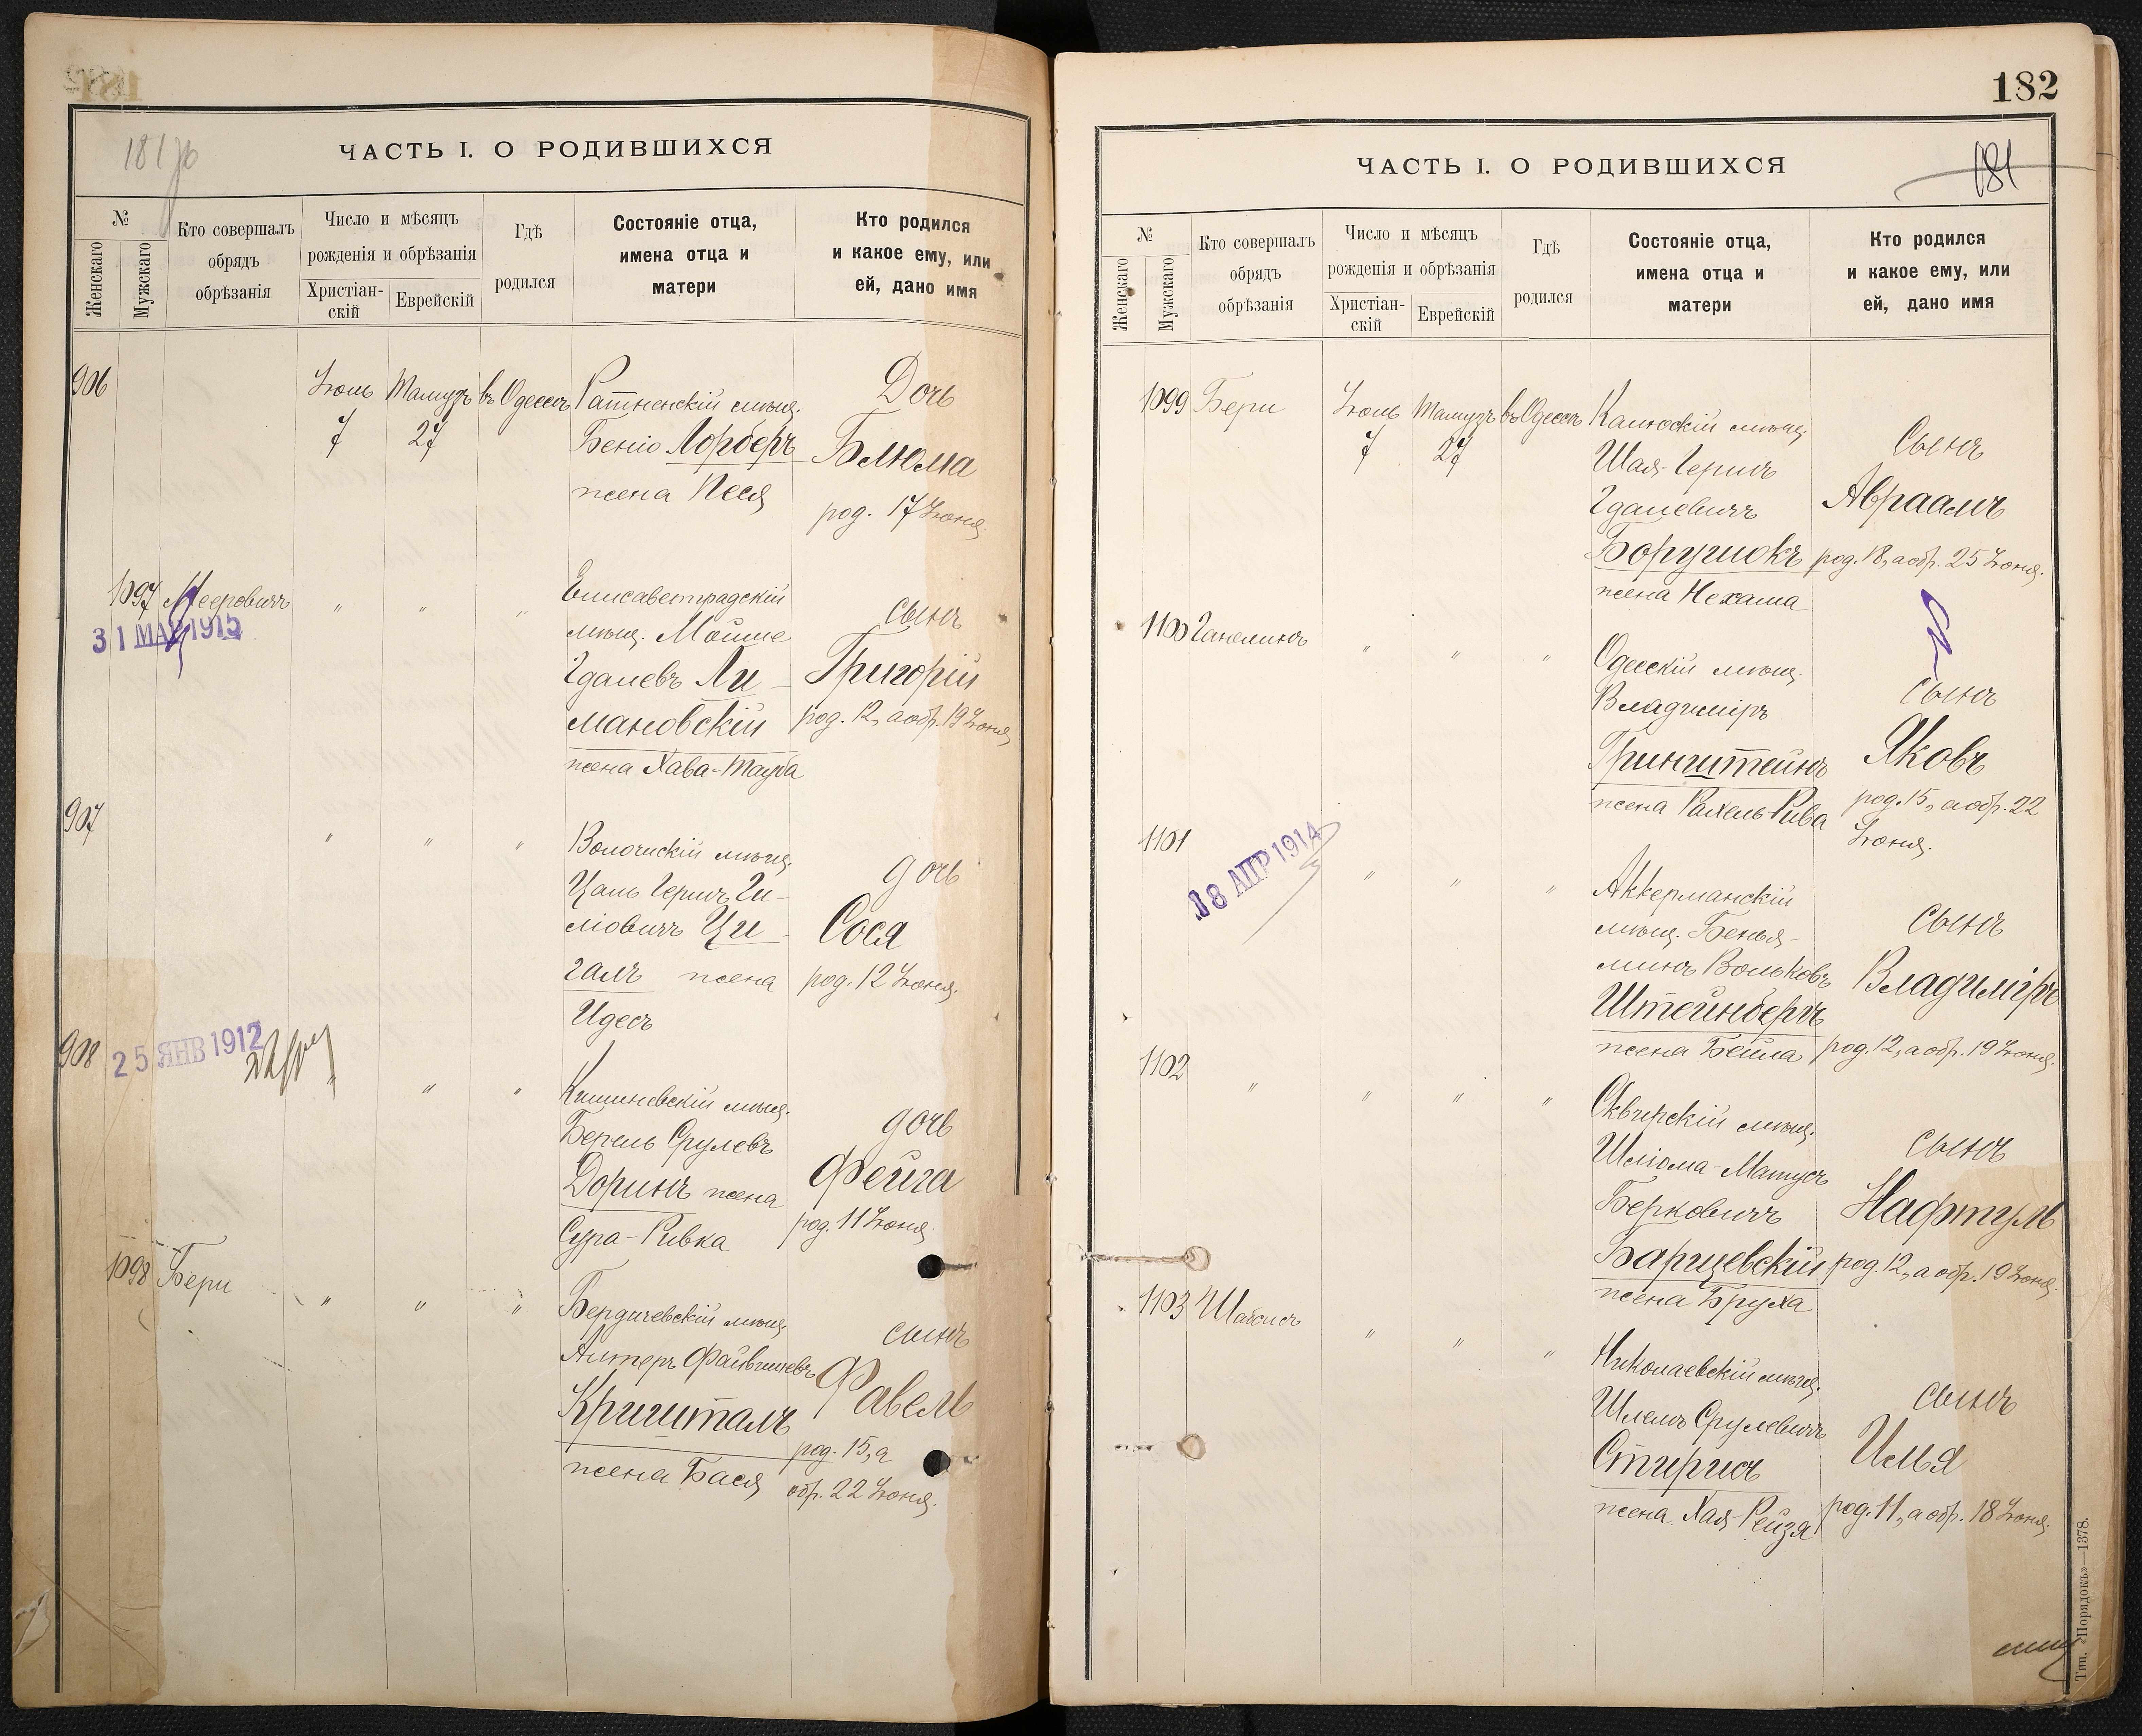 181 об
ЧАСТЬ I. О РОДИВШИХСЯ
№
Женскаго
Мужскаго
Кто совершалъ
обрядъ
обрѣзанія
Число и мѣсяцъ
рожденія и обрѣзанія
Христіан-
скій
Еврейскій
Гдѣ
родился
Состояніе отца,
имена отца и
матери
Кто родился
и какое ему, или
ей, дано имя
906
Іюль
7
Тамузъ
27
въ Одессѣ
Ратненскій мѣщ.
Беніо Лорберъ
жена Песя
Дочь
Блюма
род. 17 Іюня.
1097
Мееровичъ
31 МАР 1915
"
"
"
Елисаветградскій
мѣщ. Мойше
Гдалевъ Ли-
мановскій
жена Хава-Тауба
сынъ
Григорій
род. 12, а обр. 19 Іюня
907
"
"
"
Волочискій мѣщ.
Цаль Гершъ Ги-
ліовичъ Ци-
галъ жена
Идесъ
дочь
Сося
род. 12 Іюня.
908
25 ЯНВ 1912
"
"
"
Кишиневскій мѣщ.
Берель Срулевъ
Доринъ жена
Сура-Ривка
дочь
Фейга
род. 11 Іюня.
1098
Бери
"
"
"
Бердичевскій мѣщ.
Алтеръ Файвишевъ
Кришталъ
жена Бася
сынъ
Фавель
род. 15, а
обр. 22 Іюня.
182
181
ЧАСТЬ I. О РОДИВШИХСЯ
№
Женскаго
Мужскаго
Кто совершалъ
обрядъ
обрѣзанія
Число и мѣсяцъ
рожденія и обрѣзанія
Христіан-
скій
Еврейскій
Гдѣ
родился
Состояніе отца,
имена отца и
матери
Кто родился
и какое ему, или
ей, дано имя
1099
Бери
Іюль
7
Тамузъ
27
въ Одессѣ
Калюскій мѣщ.
Шая-Гершъ
Гдалевичъ
жена Нехама
Сынъ
Авраамъ
род. 18, а обр. 25 Іюня.
1100
Ганелинъ
"
"
"
Одесскій мѣщ.
Владиміръ
Гринштейнъ
жена Рахель-Рива
сынъ
Яковъ
род. 15, а обр. 22
Іюня.
1101
18 АПР 1914
"
"
"
Аккерманскій
мѣщ. Бенья-
минъ Вольковъ
Штейнбергъ
жена Бейла
сынъ
Владиміръ
род. 12, а обр. 19 Іюня.
1102
"
"
"
"
Сквирскій мѣщ.
Шліома-Матусъ
Берковичъ
Барщевскій
жена Бруха
сынъ
Нафтуль
род. 12, а обр. 19 Іюня
1103
Шабсисъ
"
"
"
Николаевскій мѣщ.
Шлемъ Срулевичъ
Стирисъ
жена Хая-Рейзя
сынъ
Илья
род. 11, а обр. 18 Іюня.
Тип. «Порядокъ»—1378.